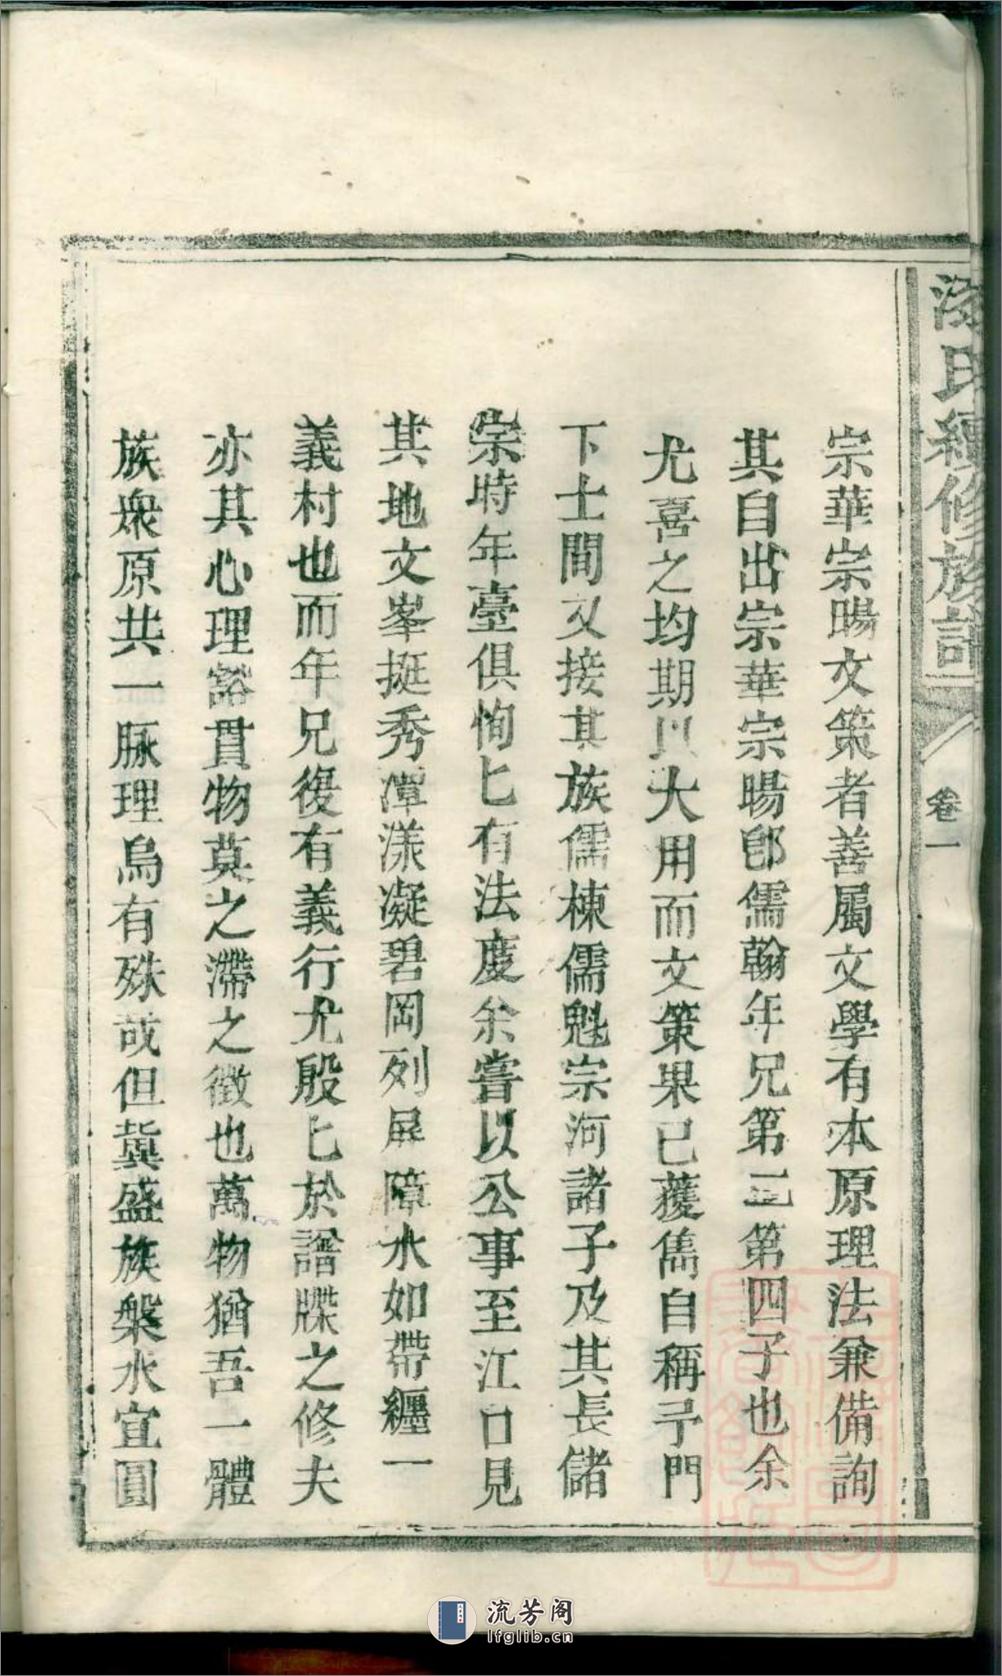 氏續修族譜
卷一
宗華宗暘文策者善屬文學有本原理法兼備詢
其自出宗華宗暘卽儒翰年兄第三第四子也余
尤喜之均期以大用而文策果已獲雋自稱予門
下士間又接其族儒棟儒魁宗河諸子及其長儲
宗時年臺俱恂匕有法度余嘗以公事至江口見
其地文峯挺秀潭漾凝碧岡列屏障水如帶纏一
義村也而年兄復有義行尤殷匕於譜牒之修夫
亦其心理豁貫物莫之滯之徵也萬物猶吾一體
族衆原共一脉理烏有殊哉但冀盛族槃水宜圓
流芳阁
lfglib.cn